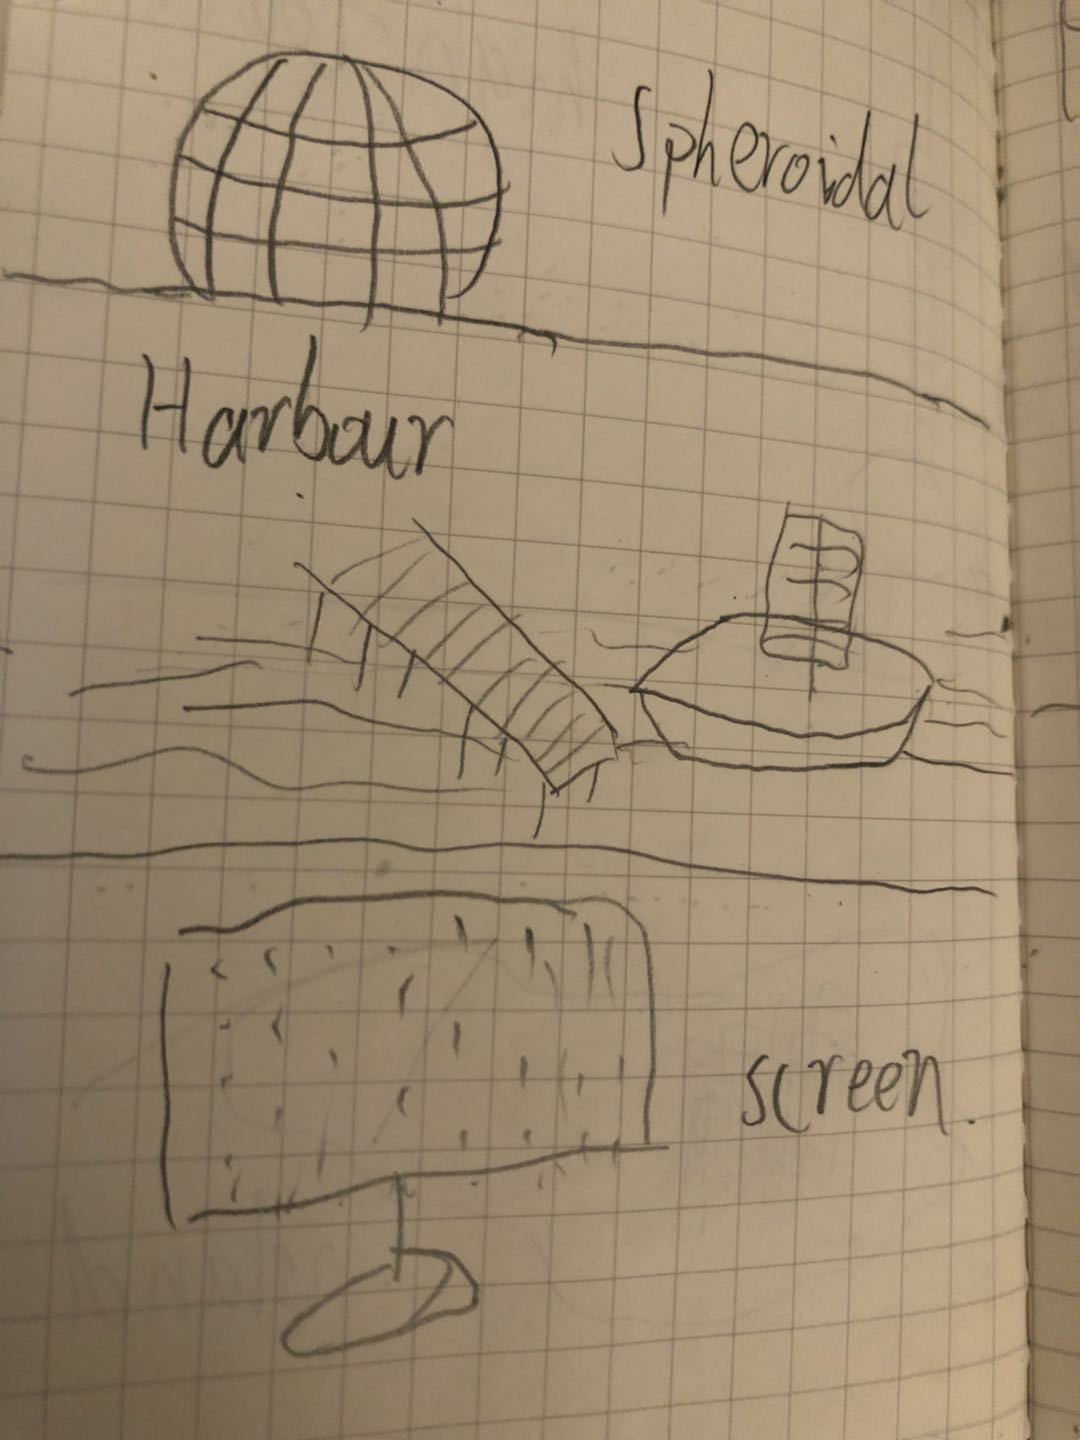 Spheroidal
Harbour
screen.